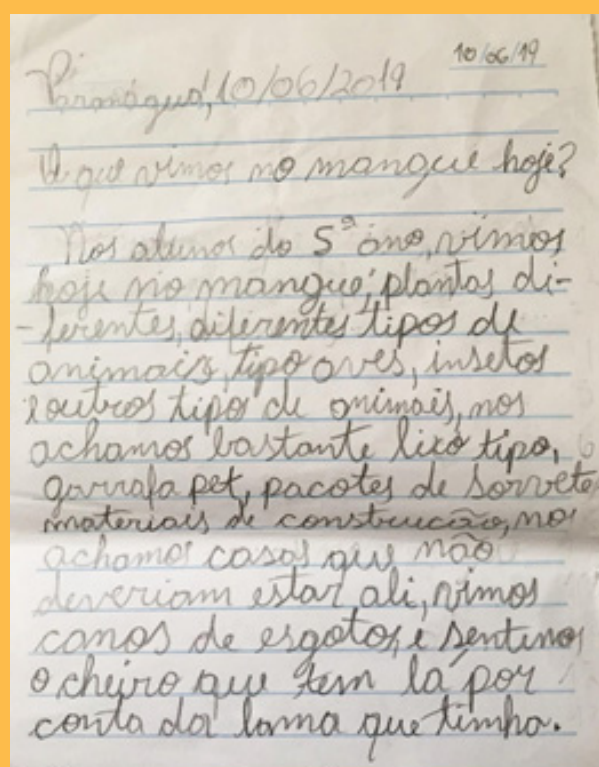 10/06/19
Paranaguá, 10/06/2019
O que vimos no mangue hoje?
Nos alunos do 5º ano, vimos
hoje no mangue; plantas di-
-ferentes, diferentes tipos de
animais, tipo aves, insetos
e outros tipos de animais, nos
achamos bastante lixo tipo,
garrafa pet, pacotes de sorvete
materiais de construcão, nos
achamos casas que não
deveriam estar ali, vimos
canos de esgotos, e sentimos
o cheiro que tem lá por
conta da lama que tinha.